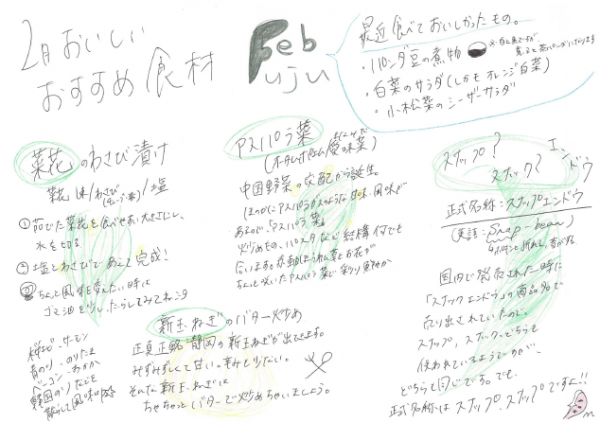 2月おいしい
おすすめ食材
Feb
uju
最近食べておいしかったもの。
・パンダ豆の煮物
・白菜のサラダ(しかもオレンジ白菜)
・小松菜のシーザーサラダ
菜花のわさび漬け
菜花1束/わさび/塩
①茹でた菜花を食べやすい大きさにし、
水を切る
②塩とわさびであえて完成!
ちょっと風味を変えたい時は
ゴマ油を少したらしてみてネ
桜エビ
青のり
ベーコン
韓国のりなどを
散らして風味
アスパラ菜
中国野菜の交配から誕生。
ほのかにアスパラのような甘味・風味が
あるので、アスパラ菜。
炒めもの、パスタなど結構何でも
合います。
ちょっと咲いたアスパラ菜で彩り鮮やか
新玉ねぎのバター炒め
正真正銘静岡の新玉ねぎが出てきます。
みずみずしくて甘い。辛みも少ない。
そんな新玉ねぎは
ちゃちゃっとバターで炒めちゃいましょう。
スナップ?
スナック?
エンドウ
正式名称:スナップエンドウ
(英語:Snap-bean)
国内で発売された時に
「スナックエンドウ」の商品名で
売り出されていたので、
スナップ、スナック、どちらも
使われているようですが、
どちらも同じです。でも、
正式名称はスナップ、スナップですよ!!